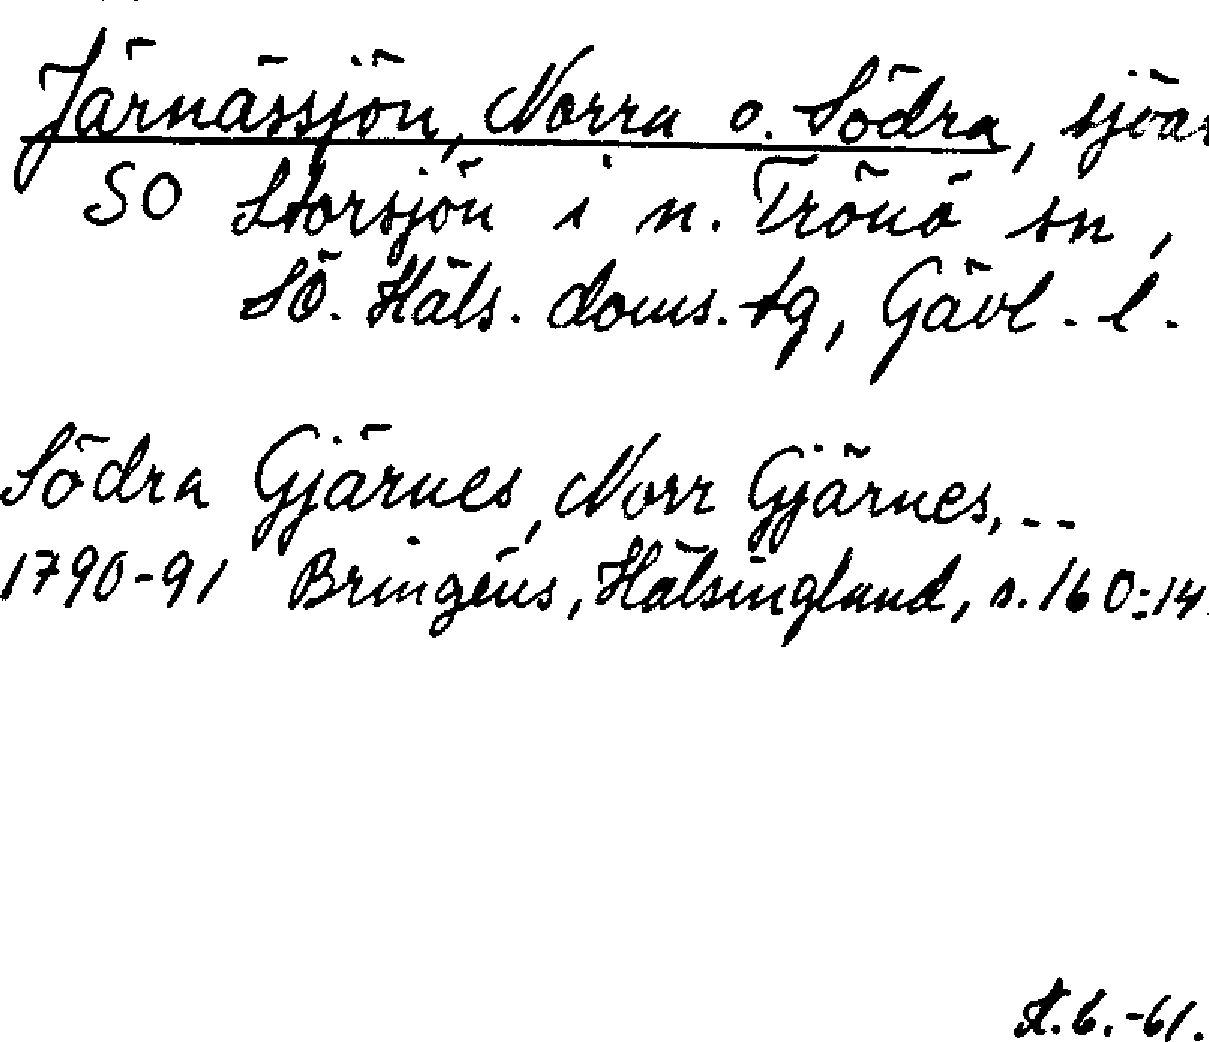 Järnässjön, Norra o. Södra, sjöar
SO Storsjön i n. Trönö sn,
SÖ. Häls. doms. tg, Gävl. l.
Södra Gjärnes, Norr Gjärnes, --
1790-91 Bringéus, Hälsingland, s. 160:14.
6.-61.